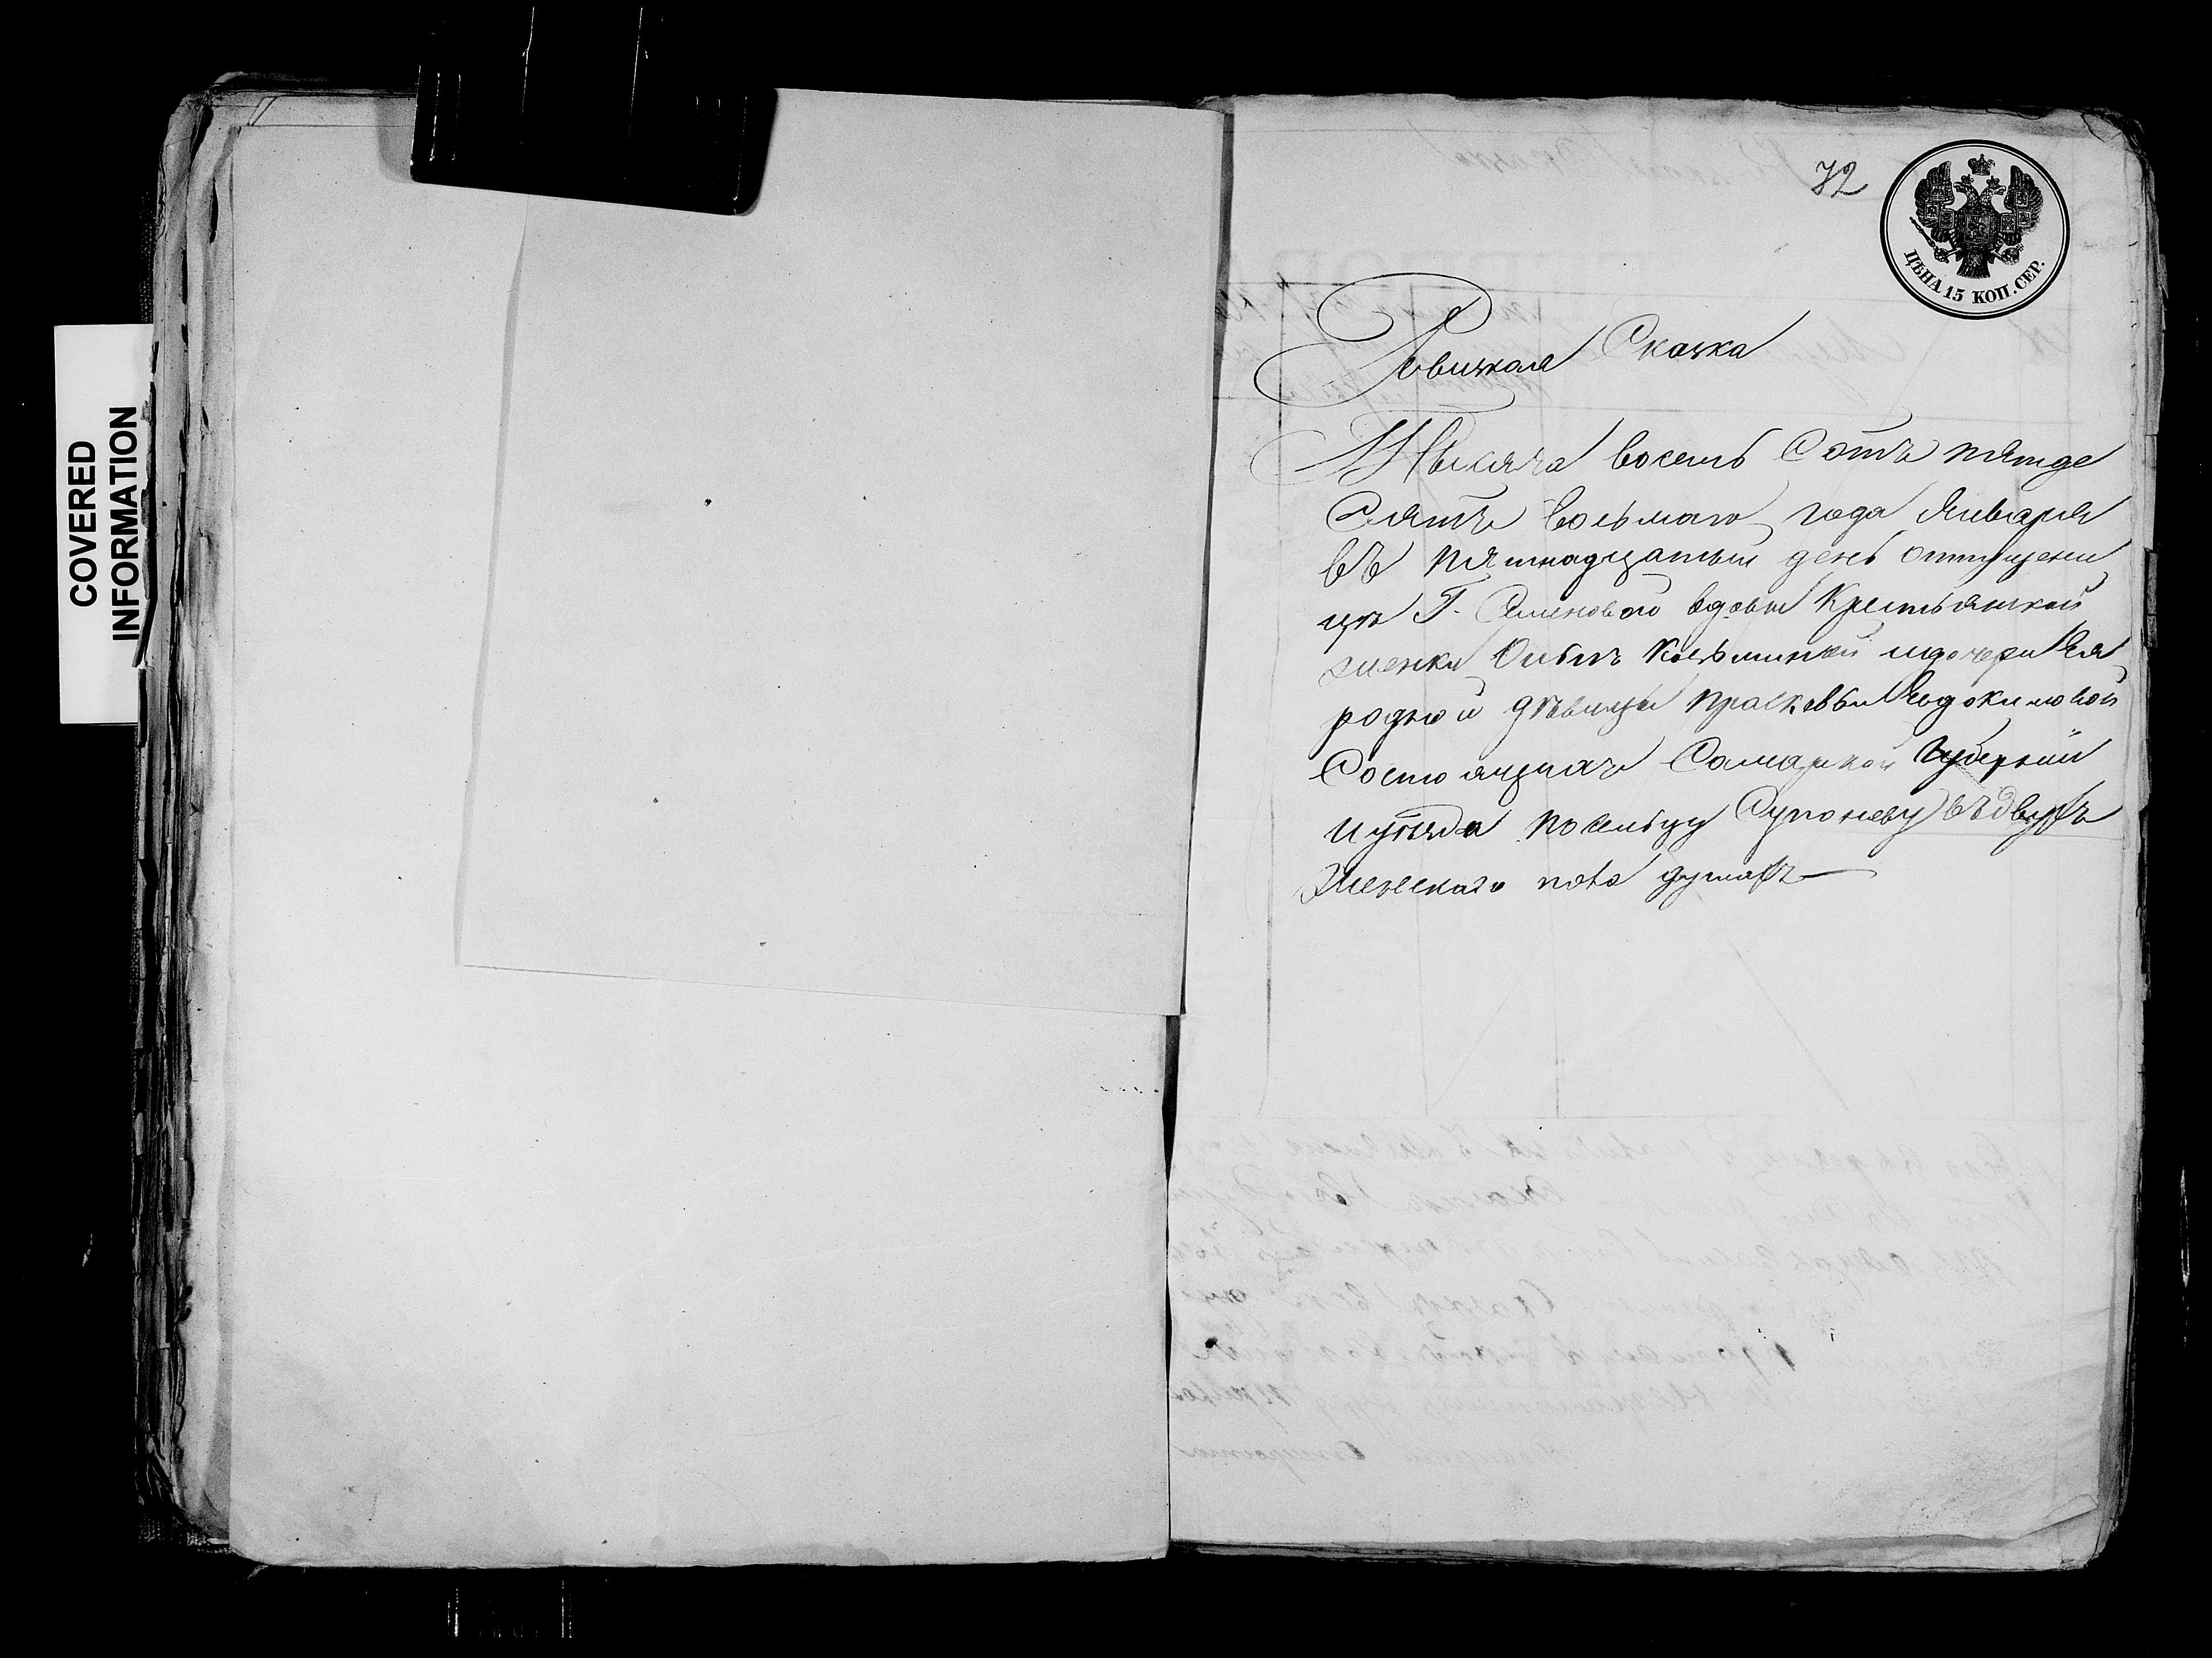 COVERED
INFORMATION
72
ЦѢНА 15 КОП. СЕР.
Ревизкая Сказка
Тысяча восемь Сотъ пятде
Сятъ восьмаго года Января
въ пятнадцатый день отпущени
цѣ Г. Семеновой вдовы Крестьянкой
женки Козьминой идочери Ея
родной дѣвицы Прасковьи Евдокимовой
Состоящихъ Самарской Губерній
иуѣзда посельцу въдвухъ
Женскаго пола душахъ